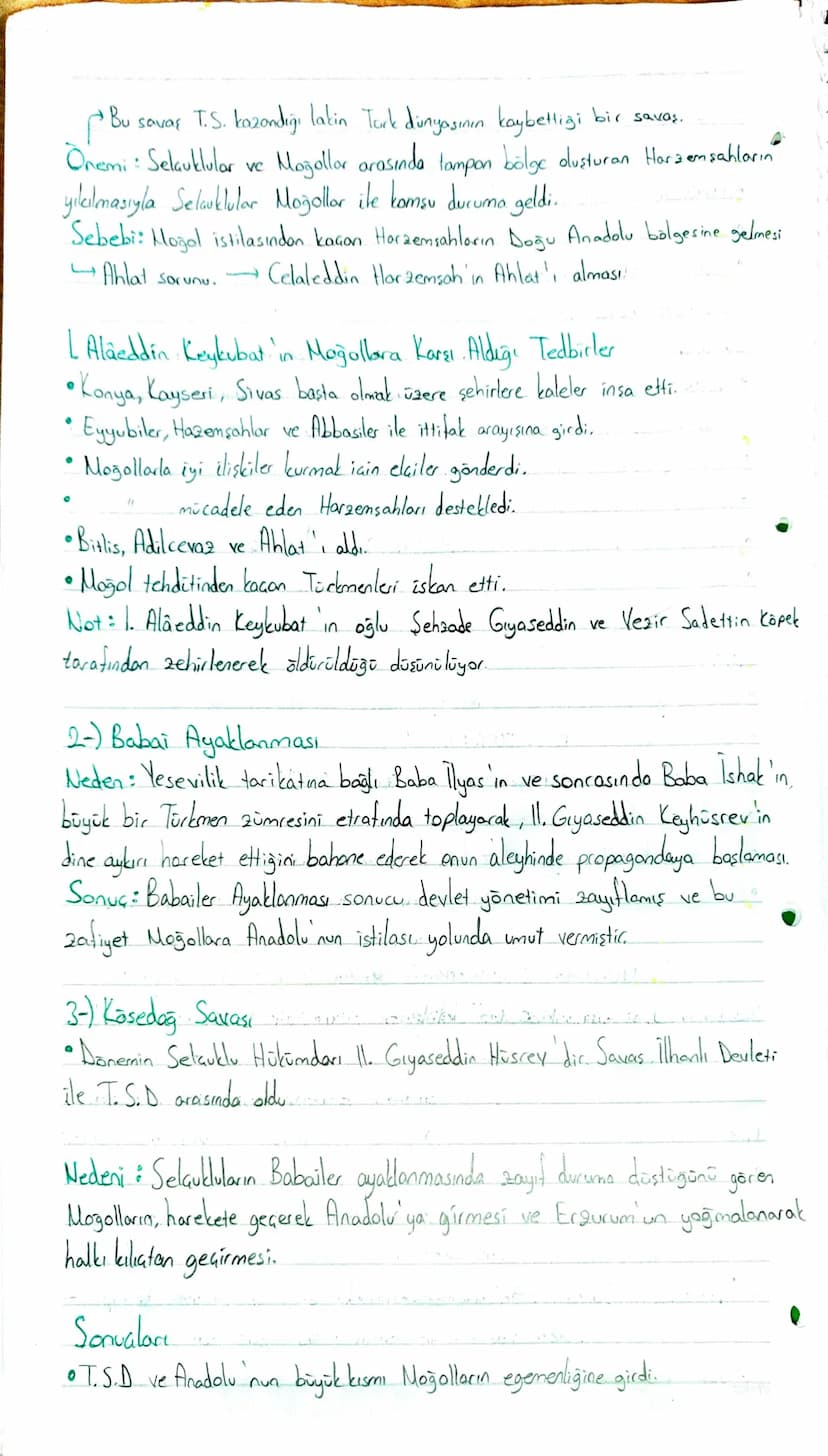 Bu savaş T.S. kazandığı lakin Türk dünyasının kaybettiği bir savaş.
Önemi: Selçuklular ve Moğollar arasında tampon bölge oluşturan Harzemşahların
yıkılmasıyla Selçuklular Moğollar ile komşu duruma geldi.
Sebebi: Moğol istilasından kaçan Harzemşahların Doğu Anadolu bölgesine gelmesi
↳ Ahlat sorunu. → Celaleddin Harzemşah'ın Ahlat'ı alması
I. Alâeddin Keykubat'ın Moğollara Karşı Aldığı Tedbirler
• Konya, Kayseri, Sivas başta olmak üzere şehirlere kaleler inşa etti.
• Eyyubiler, Hazemşahlar ve Abbasiler ile ittifak arayışına girdi.
• Moğollarla iyi ilişkiler kurmak için elçiler gönderdi.
• " mücadele eden Harzemşahları destekledi.
• Bitlis, Adilcevaz ve Ahlat'ı aldı.
• Moğol tehditinden kaçan Türkmenleri iskan etti.
Not: I. Alâeddin Keykubat'ın oğlu Şehzade Gıyaseddin ve Vezir Sadettin Köpek
tarafından zehirlenerek öldürüldüğü düşünülüyor.
2-) Babai Ayaklanması
Neden: Yesevilik tarikatına bağlı Baba İlyas'ın ve sonrasında Baba İshak'ın,
büyük bir Türkmen zümresini etrafında toplayarak, II. Gıyaseddin Keyhüsrev'in
dine aykırı hareket ettiğini bahane ederek onun aleyhinde propagandaya başlaması.
Sonuç: Babailer Ayaklanması sonucu devlet yönetimi zayıflamış ve bu
zafiyet Moğollara Anadolu'nun istilası yolunda umut vermiştir.
3-) Kösedağ Savaşı
• Dönemin Selçuklu Hükümdarı II. Gıyaseddin Hüsrev'dir. Savaş İlhanlı Devleti
ile T.S.D. arasında oldu
Nedeni: Selçukluların Babailer ayaklanmasında zayıf duruma düştüğünü gören
Moğolların, harekete geçerek Anadolu'ya girmesi ve Erzurum'un yağmalanarak
halkı kılıçtan geçirmesi.
Sonuçları
• T.S.D ve Anadolu'nun büyük kısmı Moğolların egemenliğine girdi.